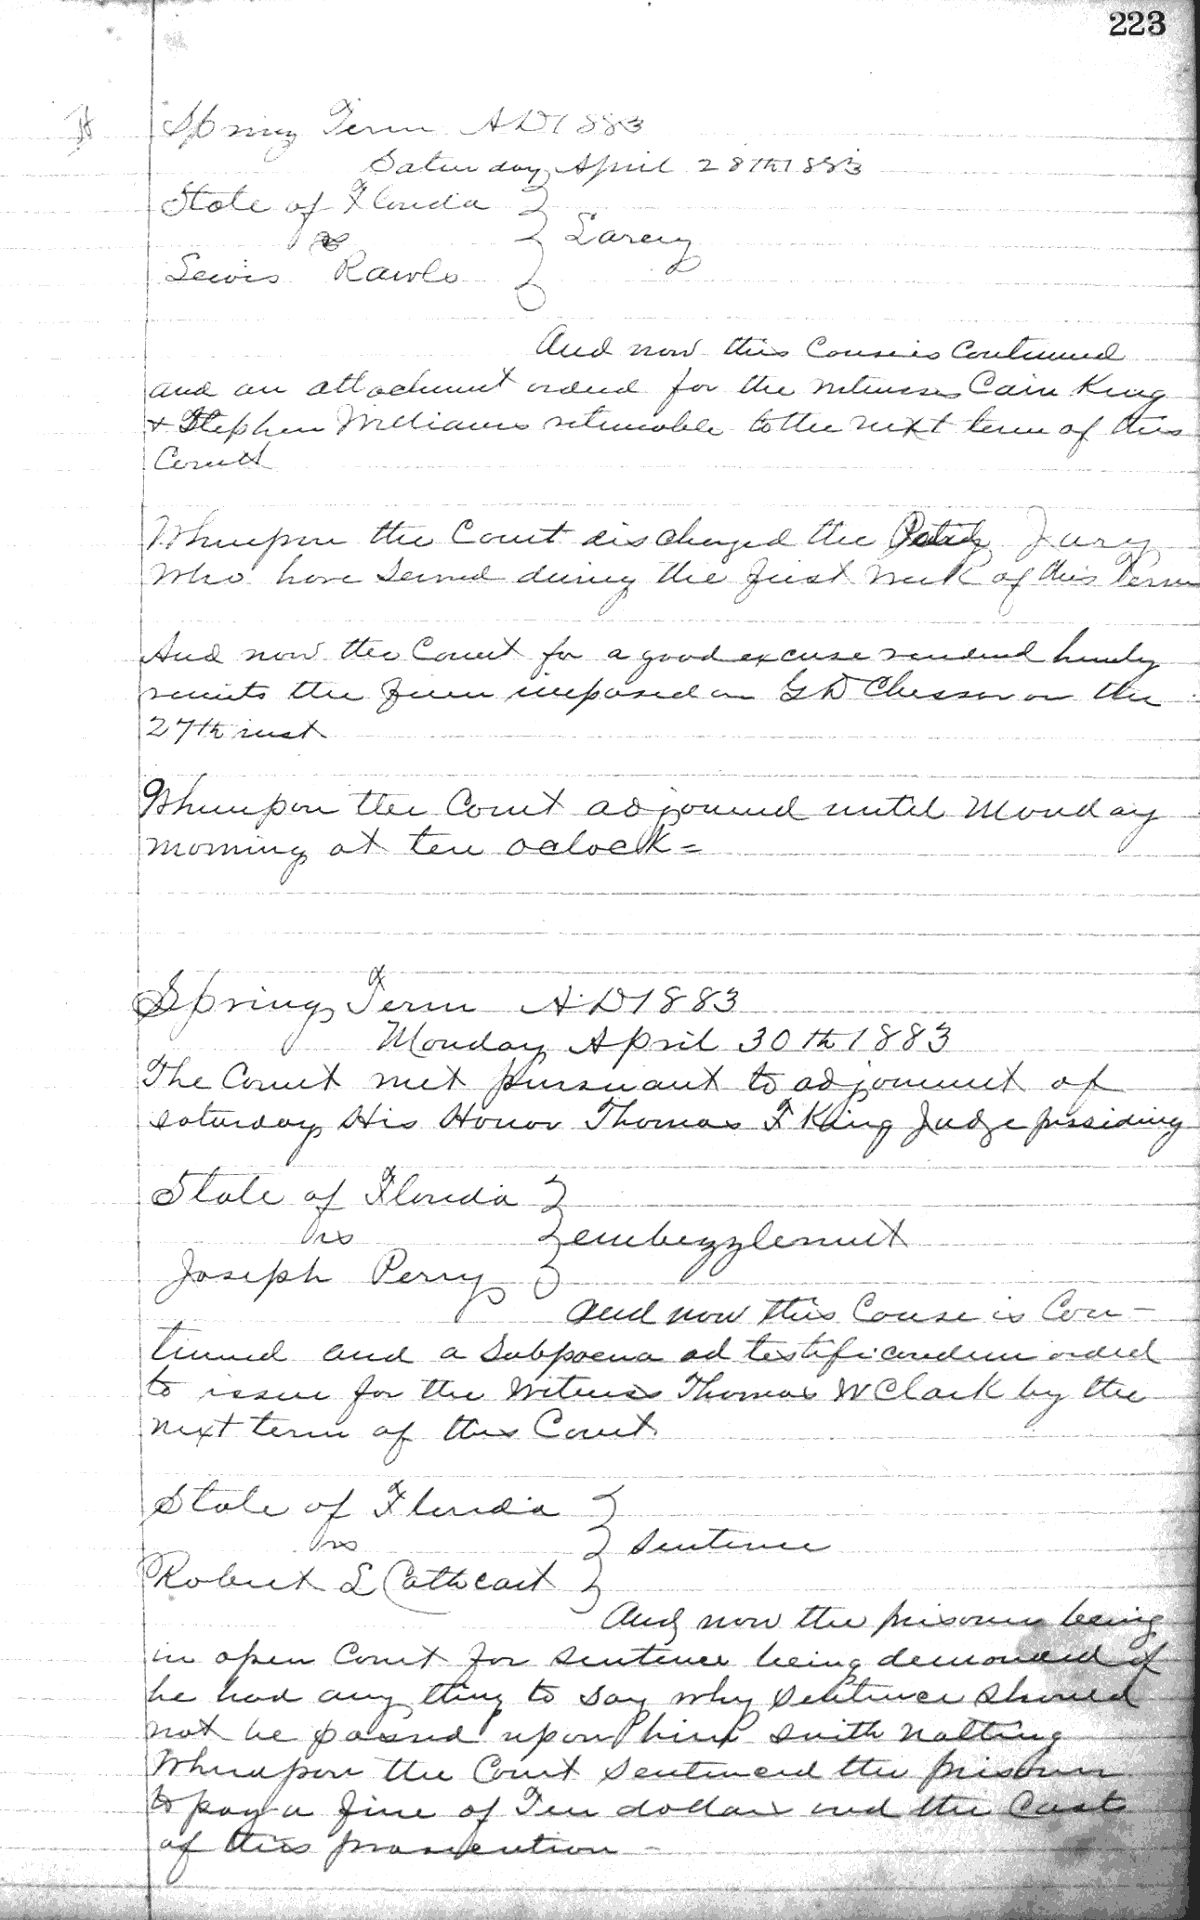 223
Spring Term AD 1883
Saturday April 28th 1883
State of Florida
vs
Larcy
Lewis Rawls
And now this Cause is Continued
and an attachment ordered for the witnesses Cain King
& Stephen Williams returnable to the next term of this
Court
Whereupon the Court discharged the Petit Jury
who have served during the first week of this Term
And now the Court for a good excuse rendered hereby
remits the fine imposed on G D Chesser on the
27th inst
Whereupon the Court adjourned until Monday
morning at ten oclock =
Spring Term A.D 1883
Monday April 30th 1883
The Court met pursuant to adjournment of
saturday His Honor Thomas F King Judge presiding
State of Florida
vs
embezzlement
Joseph Perry
And now this Cause is Con-
tinued and a Subpoena ad testificandum orded
to issue for the Witness Thomas W Clark by the
next term of this Court
State of Florida
vs
Sentence
Robert L Cathcart
And now the prisoner being
in open Court for Sentence being demanded if
he had any thing to Say why Sentence Should
not be passed upon him saith nothing
Whereupon the Court Sentenced the prisoner
to pay a fine of Ten dollars and the Cost
of this prosecution -